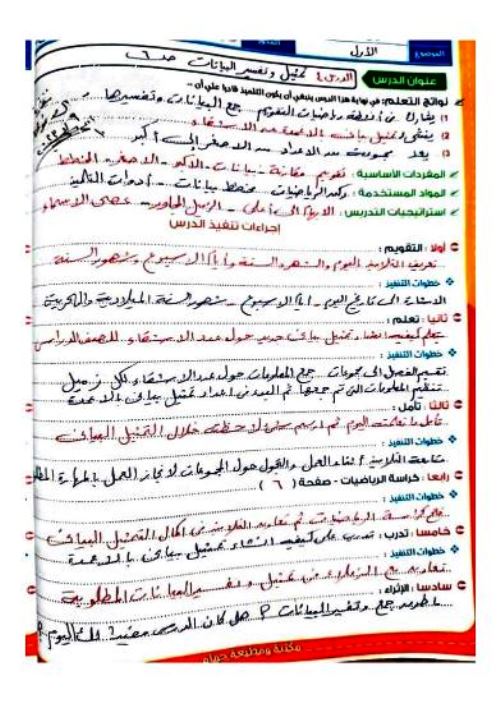 الموضوع الأول
عنوان الدرس الدرس ٤ تمثيل وتفسير البيانات صـ ٦
نواتج التعلم: في نهاية هذا الدرس ينبغي أن يكون التلميذ قادرا على أن ...
١) يشارك في أنشطة رياضيات التقويم جمع البيانات وتفسيرها
٢) ينشئ تمثيل بيانى بالأعمدة عدد الأشقاء
٣) يعد مجموعات من الأعداد من الأصغر إلى أكبر
المفردات الأساسية : تقويم - مقارنة - بيانات - الأكبر - الأصغر - المخطط
المواد المستخدمة : ركن الرياضيات - مخطط بيانات - أدوات التلميذ
استراتيجيات التدريس : الأيدي إلى أعلى - الزميل المجاور - عصى الأسماء
إجراءات تنفيذ الدرس
أولا : التقويم :
تعريف التلاميذ اليوم والشهر والسنة وأيام الأسبوع وشهور السنة
خطوات التنفيذ :
الاشارة إلى تاريخ اليوم - أيام الأسبوع - شهور السنة الميلادية والهجرية
ثانيا : تعلم :
تمثيل بيانى جديد حول عدد الأشقاء للصف الدراسى
خطوات التنفيذ :
تقسيم الفصل إلى مجموعات جمع المعلومات حول عدد الأشقاء لكل زميل
تنظيم المعلومات التى تم جمعها ثم البدء فى اعداد تمثيل بيانى بالأعمدة
ثالثا : تأمل :
تأمل ما تعلمته اليوم ثم ارسم خلال التمثيل البيانى
خطوات التنفيذ :
متابعة التلاميذ أثناء العمل والتجول حول المجموعات لانجاز العمل بالمهارة
رابعا : كراسة الرياضيات - صفحة ( ٦ )
خطوات التنفيذ :
فتح كراسة الرياضيات ثم تعاون التلاميذ فى اكمال التمثيل البيانى
خامسا : تدرب : تدرب على كيفية انشاء تمثيل بيانى بالأعمدة
خطوات التنفيذ :
تعاون مع الزملاء فى تمثيل وتفسير البيانات المطلوبة
سادسا : الإثراء :
جمع وتفسير البيانات ؟ هل كان الدرس مفيد لك اليوم ؟
مكتبة ومطبعة حماده